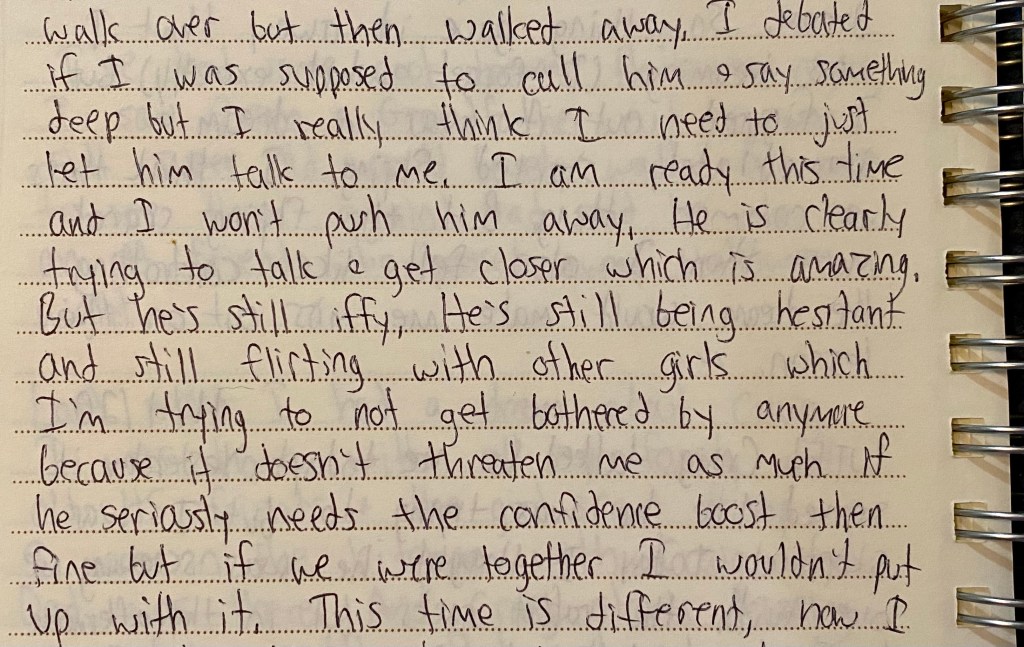 walk over but then walked away. I debated
if I was supposed to call him & say something
deep but I really think I need to just
let him talk to me. I am ready this time
and I won't push him away. He is clearly
trying to talk & get closer which is amazing.
But he's still iffy, He's still being hesitant
and still flirting with other girls which
I'm trying to not get bothered by anymore
because it doesn't threaten me as much if
he seriously needs the confidence boost then
fine but if we were together I wouldn't put
up with it. This time is different, now I